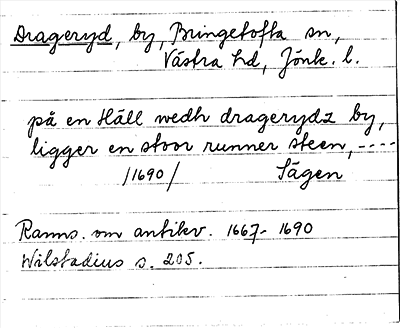 Drageryd, by, Bringetofta sn,
Västra hd, Jönk. l.
på en Häll wedh dragerydz by,
ligger en stoor runner steen, ----
/1690/ Sägen
Ranns. om antikv. 1667-1690
Wilstadius s. 205.